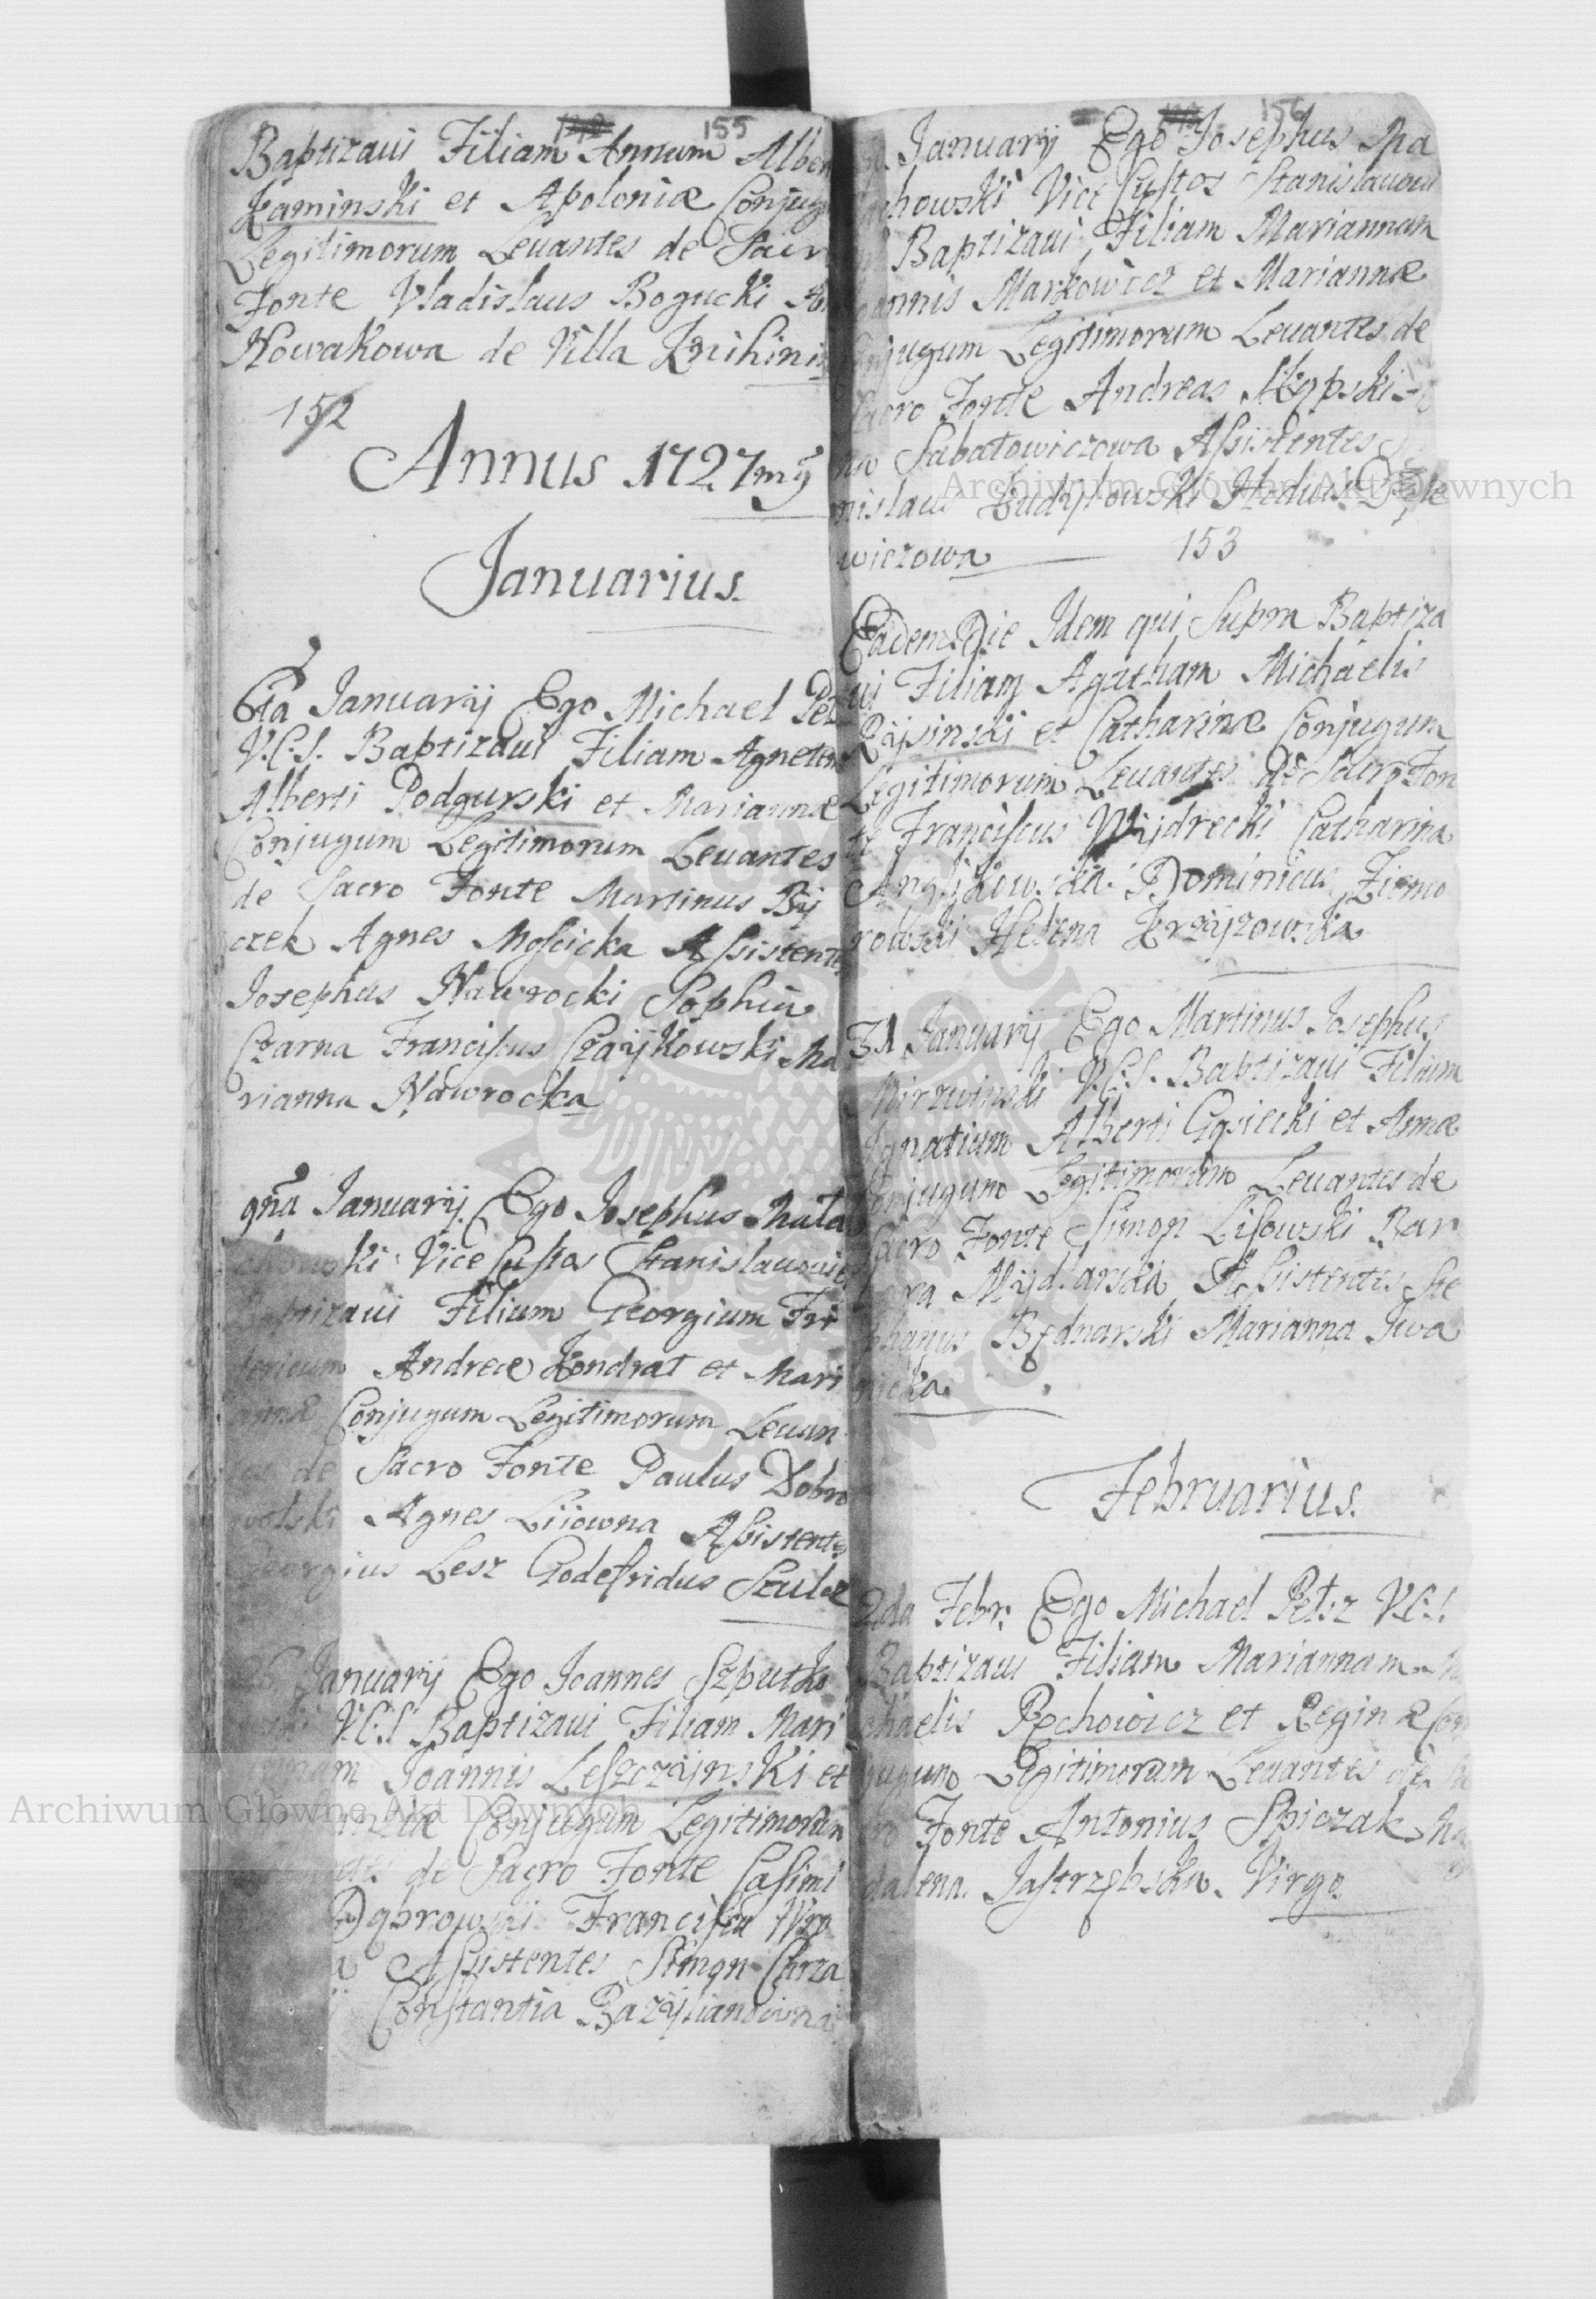 155
Baptizaui Filiam Annam Alber
Kaminski et Apoloniæ Conjug
Legitimorum Leuantes de Sacr
Fonte Vladislaus Bogucki
Nowakowa de Villa
152
Annus 1727mỹ
Januarius.
6ta Januarij Ego Michael Pet
V.C.S. Baptizaui Filiam Agnetem
Alberti Podgurski et Mariannæ
Conjugum Legitimorum Leuantes
de Sacro Fonte Martinus Bij
czek Agnes Moscicka Assistente
Josephus Nawrocki Sophia
Czarna Franciscus Czaÿkowski Ma
rianna Nawrocka
9na Januarij Ego Josephus Mala
ki Vice Custos Stanislauoui
tizaui Filium Georgium Fri
tericum Andreæ Kondrat et Mari
annæ Conjugum Legitimorum Leuan
tes de Sacro Fonte Paulus Dobro
wolski Agnes Liiowna Assistente
Georgius Lesz Godefridus Szulcz
26 Januarij Ego Joannes Szputko
wski V.C.S Baptizaui Filiam Mari
annam Joannis Leszczÿnski et
Conjugum Legitimorum
de Sacro Fonte Casimi
Dąbrowski Francisca Wro
a Assistentes Simon Carza
Constantia Bazÿlianowna
156
Januarij Ego Josephus Ma
chowski Vice Custos Stanislauoui
Baptizaui Filiam Mariannam
Joannis Markowicz et Mariannæ
Conjugum Legitimorum Leuantes de
Sacro Fonte Andreas
Sabatowiczowa Assistentes
nislaus Hedwis
wiczowa
153
Eadem Die Idem qui Supra Baptiza
ui Filiam Agatham Michaelis
Rÿsinski et Catharinæ Conjugum
Legitimorum Leuantes de Sacro Fon
te Franciscus Wÿdrecki Catharina
Anglikowska. Dominicus Ziemo
rowski Helena Krzÿzowska
31 Januarij Ego Martinus Josephus
Mirzwinski V.C.S. Baptizaui Filium
Ignatium Alberti Gąsiecki et Annæ
Conjugum Legitimorum Leuantes de
Sacro Fonte Simon Lisowski Bar
bara Mÿdlarska Assistentes Ste
phanus Bednarski Marianna Iwa
nicka
Februarius.
2da Febr. Ego Michael Petsz V.C.S.
Baptizaui Filiam Mariannam Mi
chaelis Pechowicz et Reginæ Con
jugum Legitimorum Leuantes de Sa
cro Fonte Antonius Spiczak Ma
dalena Jastrzębska Virgo
Archiwum Główne Akt Dawnych
Archiwum Główne Akt Dawnych